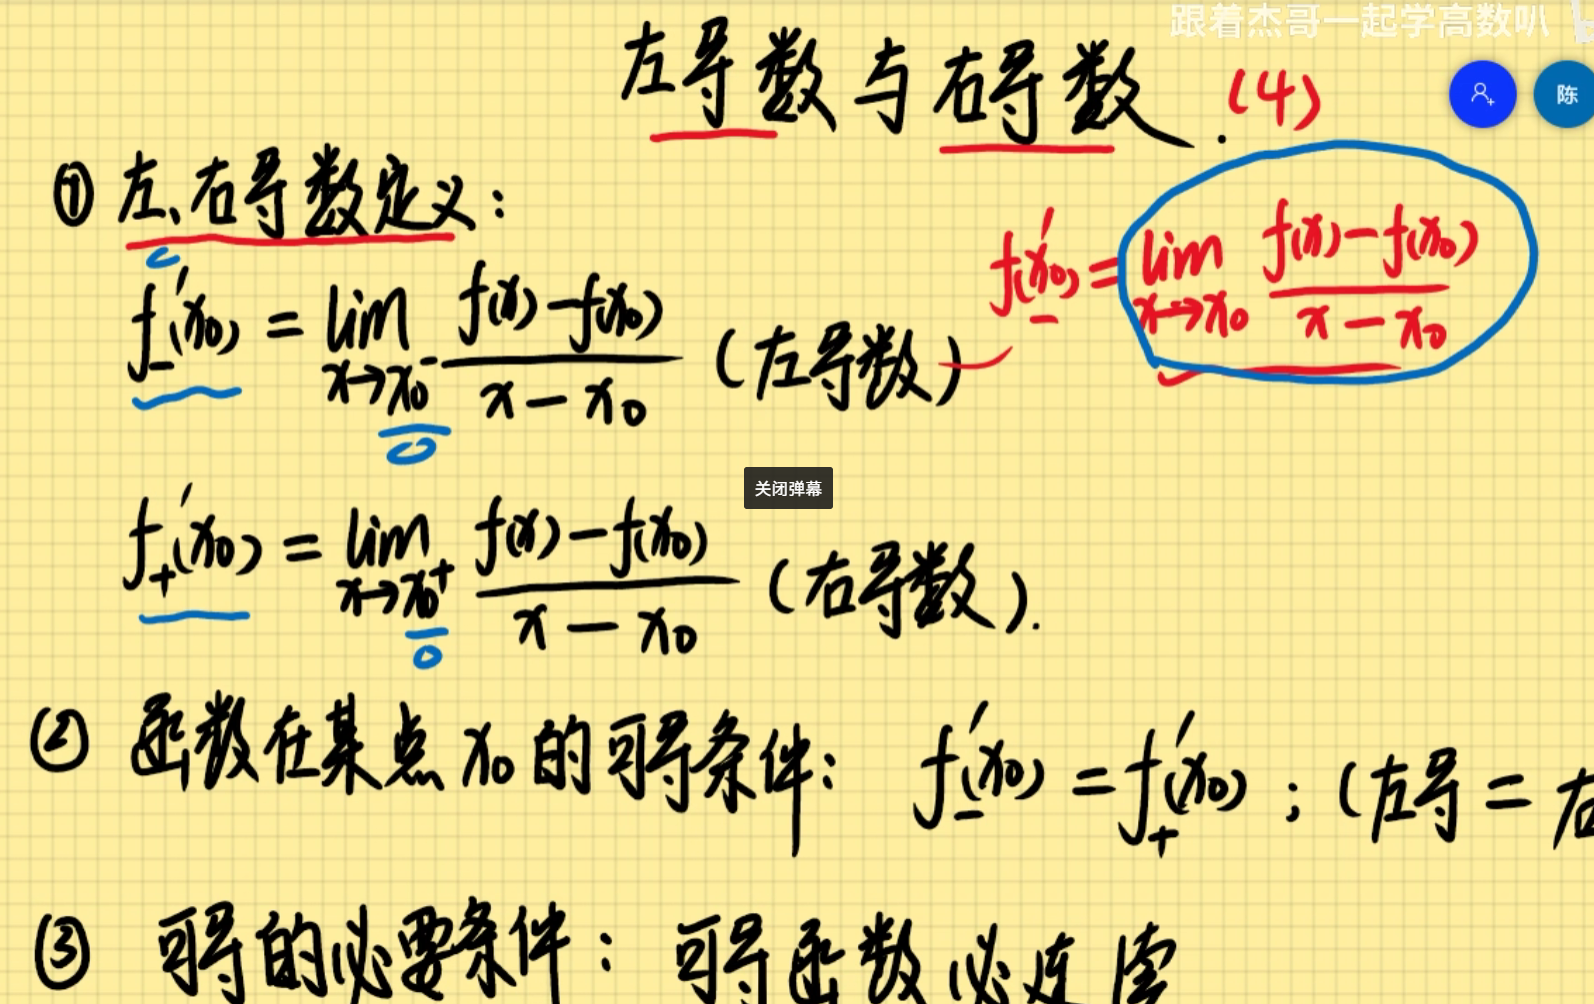 跟着杰哥一起学高数叭
左导数与右导数.(4)
陈
① 左、右导数定义:
f'₋(x₀) = lim x→x₀⁻ (f(x)-f(x₀))/(x-x₀) (左导数)
f'₋(x₀) = lim x→x₀ (f(x)-f(x₀))/(x-x₀)
关闭弹幕
f'₊(x₀) = lim x→x₀⁺ (f(x)-f(x₀))/(x-x₀) (右导数).
② 函数在某点x₀的可导条件: f'₋(x₀) = f'₊(x₀) ; (左导 = 右
③ 可导的必要条件: 可导函数必连续